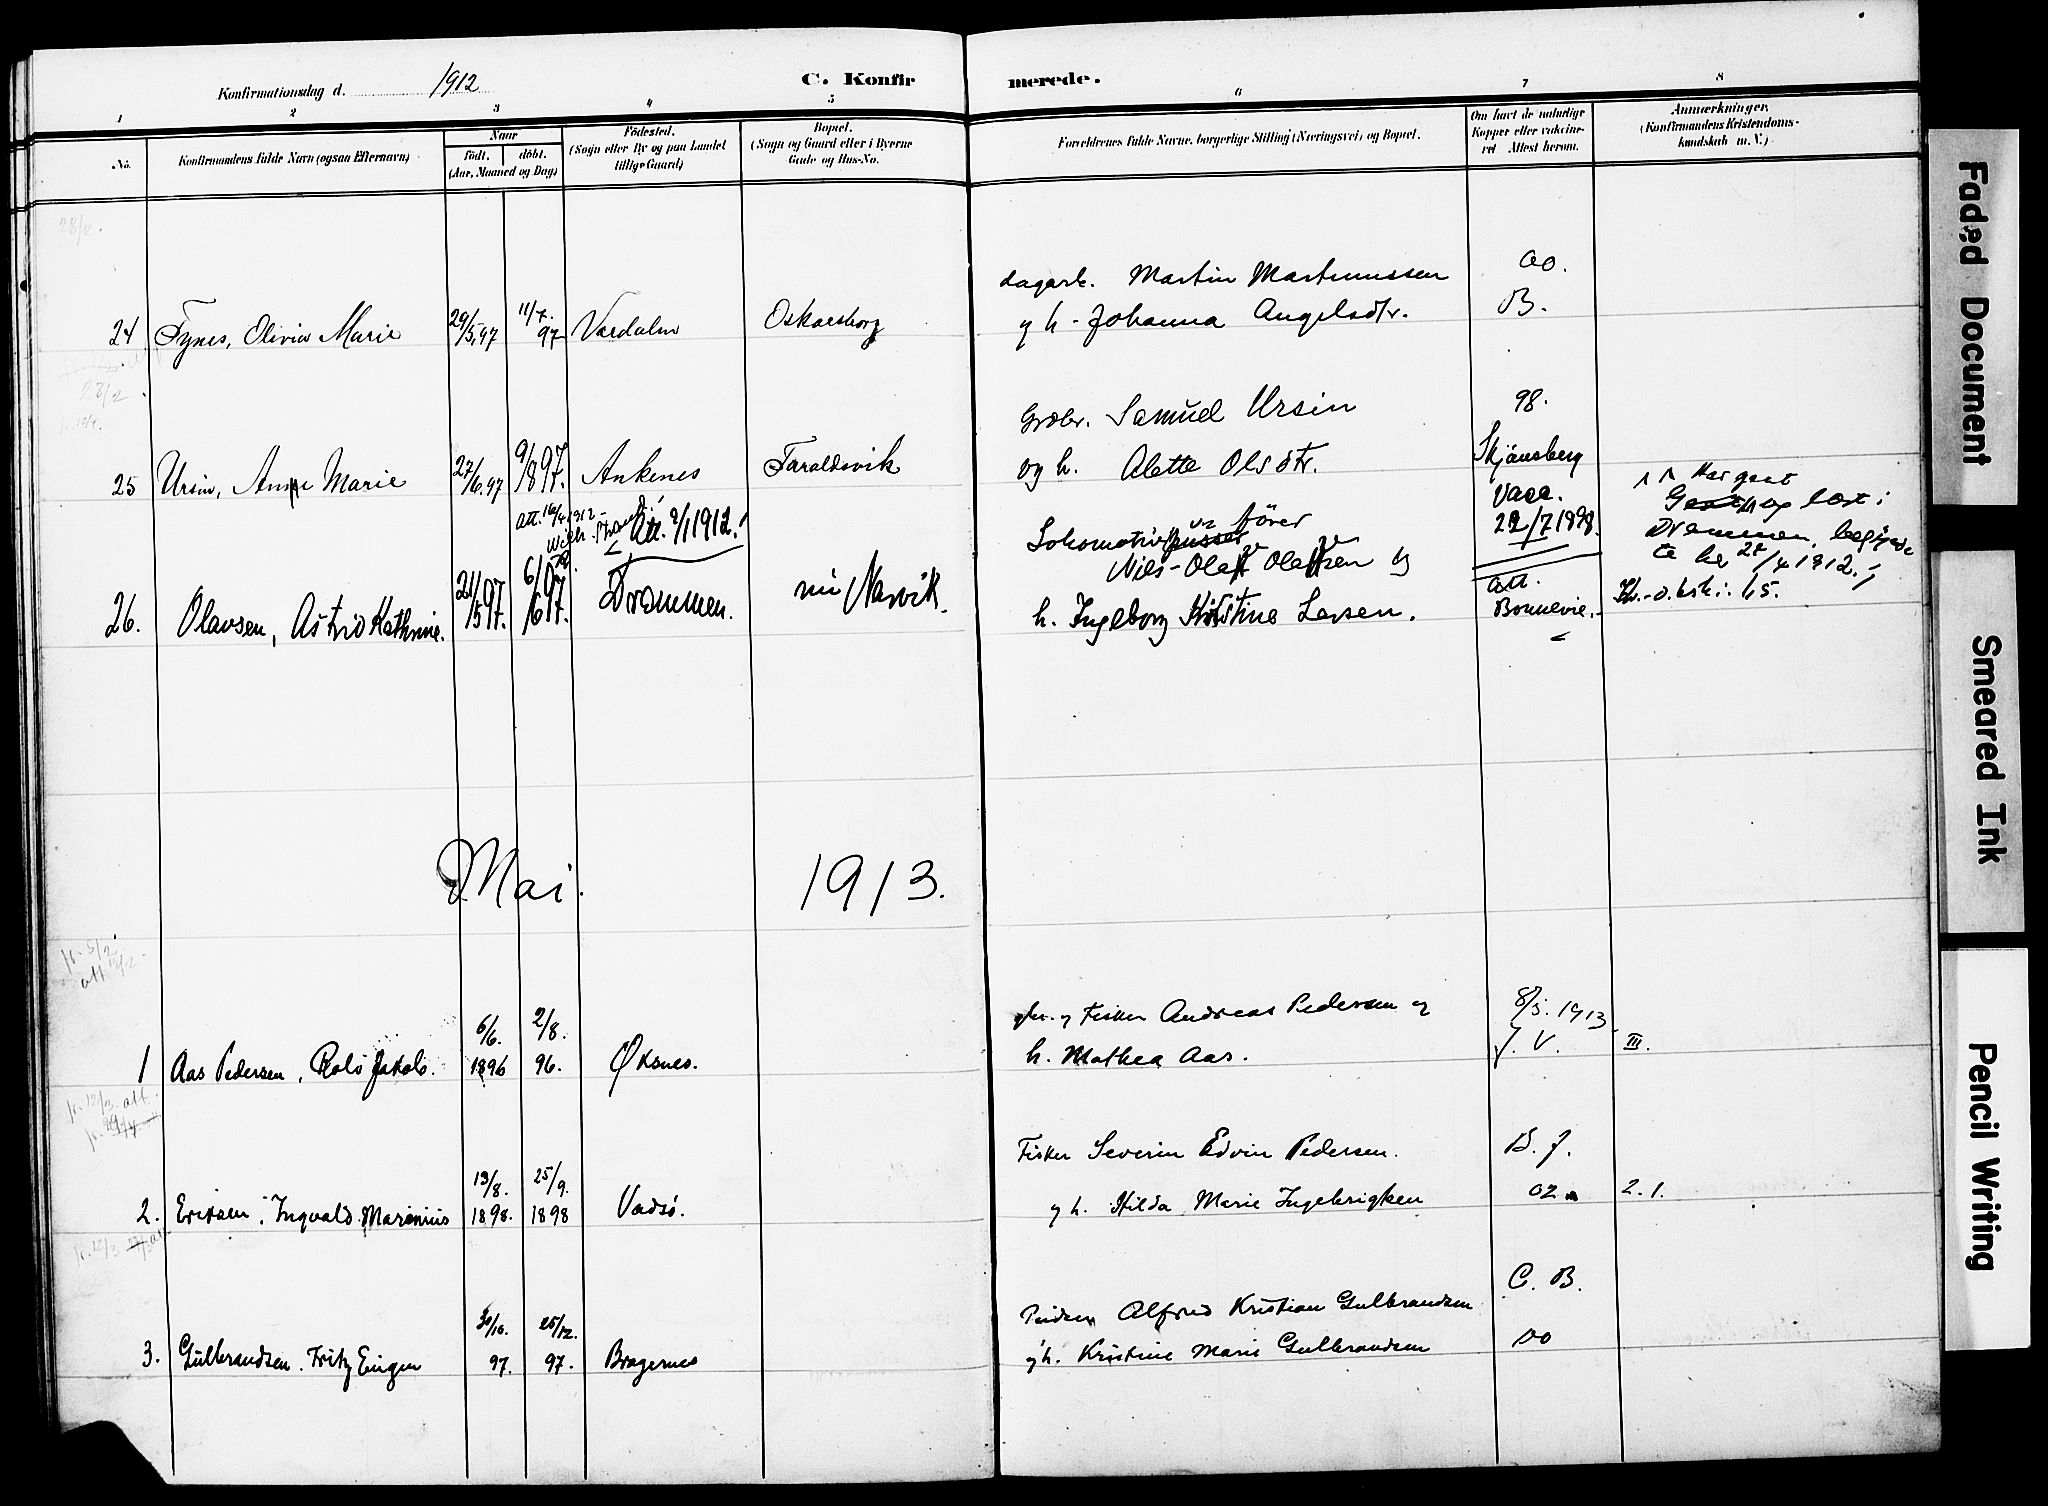 Konfirmationsdag d. 1912
C. Konfirmerede.
1 2 3 4 5 6 7 8
No.
Konfirmandens fulde Navn (ogsaa Efternavn)
Naar
födt. döbt.
(Aar, Maaned og Dag)
Födested.
(Sogn eller By og paa Landet
tillige Gaard)
Bopæl.
(Sogn og Gaard eller i Byerne
Gade og Hus-No.
Forældrenes fulde Navne, borgerlige Stilling (Næringsvei) og Bopæl.
Om havt de naturlige
Kopper eller vaccine-
ret Attest herom.
Anmærkninger.
(Konfirmandens Kristendoms-
kundskab m. V.)
28/2.
dagarb. Martin Martinussen
00.
24 Fynes, Olivia Marie 29/5,97 11/7. 97 Vardalen Oskarsborg
g h. Johanna Angelsdtr.
B.
28/2
Grdbr. Samuel Ursin
98.
25 Ursin, Anne Marie 27/6.97 9/897. Ankenes Taraldsvik
og h. Alette Olsdtr.
Skjånsberg
Vacc.
22/7 1898.
att. 16/4 1912
Att. 9/1 1912.!
Lokomotivpusser fører
Nils Olaf Olavsen og
26. Olavsen, Astrid Kathrine. 21/597. 6/697. Drammen. nu Narvik.
h. Ingeborg Kristine Larsen.
att.
Bonnevie.
Har gaat
og læst i
Drammen, begyndte her 22/4 1912.!
Mai. 1913.
fr. 5/2
att 12/2
og Fisker Andreas Pedersen og
8/5. 1913
6/6. 2/8.
1 Aas Pedersen, Rolf Jakob. 1896 96. Øksnes.
h. Mathea Aas.
J. V. III.
fr. 12/3. att.
Fisker Severin Edvin Pedersen.
B. J.
13/8. 25/9.
2. Eriksen, Ingvald Marinius 1898. 1898 Vadsø.
g h. Hilda Marie Ingebrigtsen
02. 2.1.
fr. 12/3
C. B.
Alfred Kristian Gulbrandsen
30/10. 25/12.
3. Gulbrandsen. Fritz Eugen 97. 97. Bragernes
g h. Kristine Marie Gulbrandsen
00
Faded Document
Smeared Ink
Pencil Writing